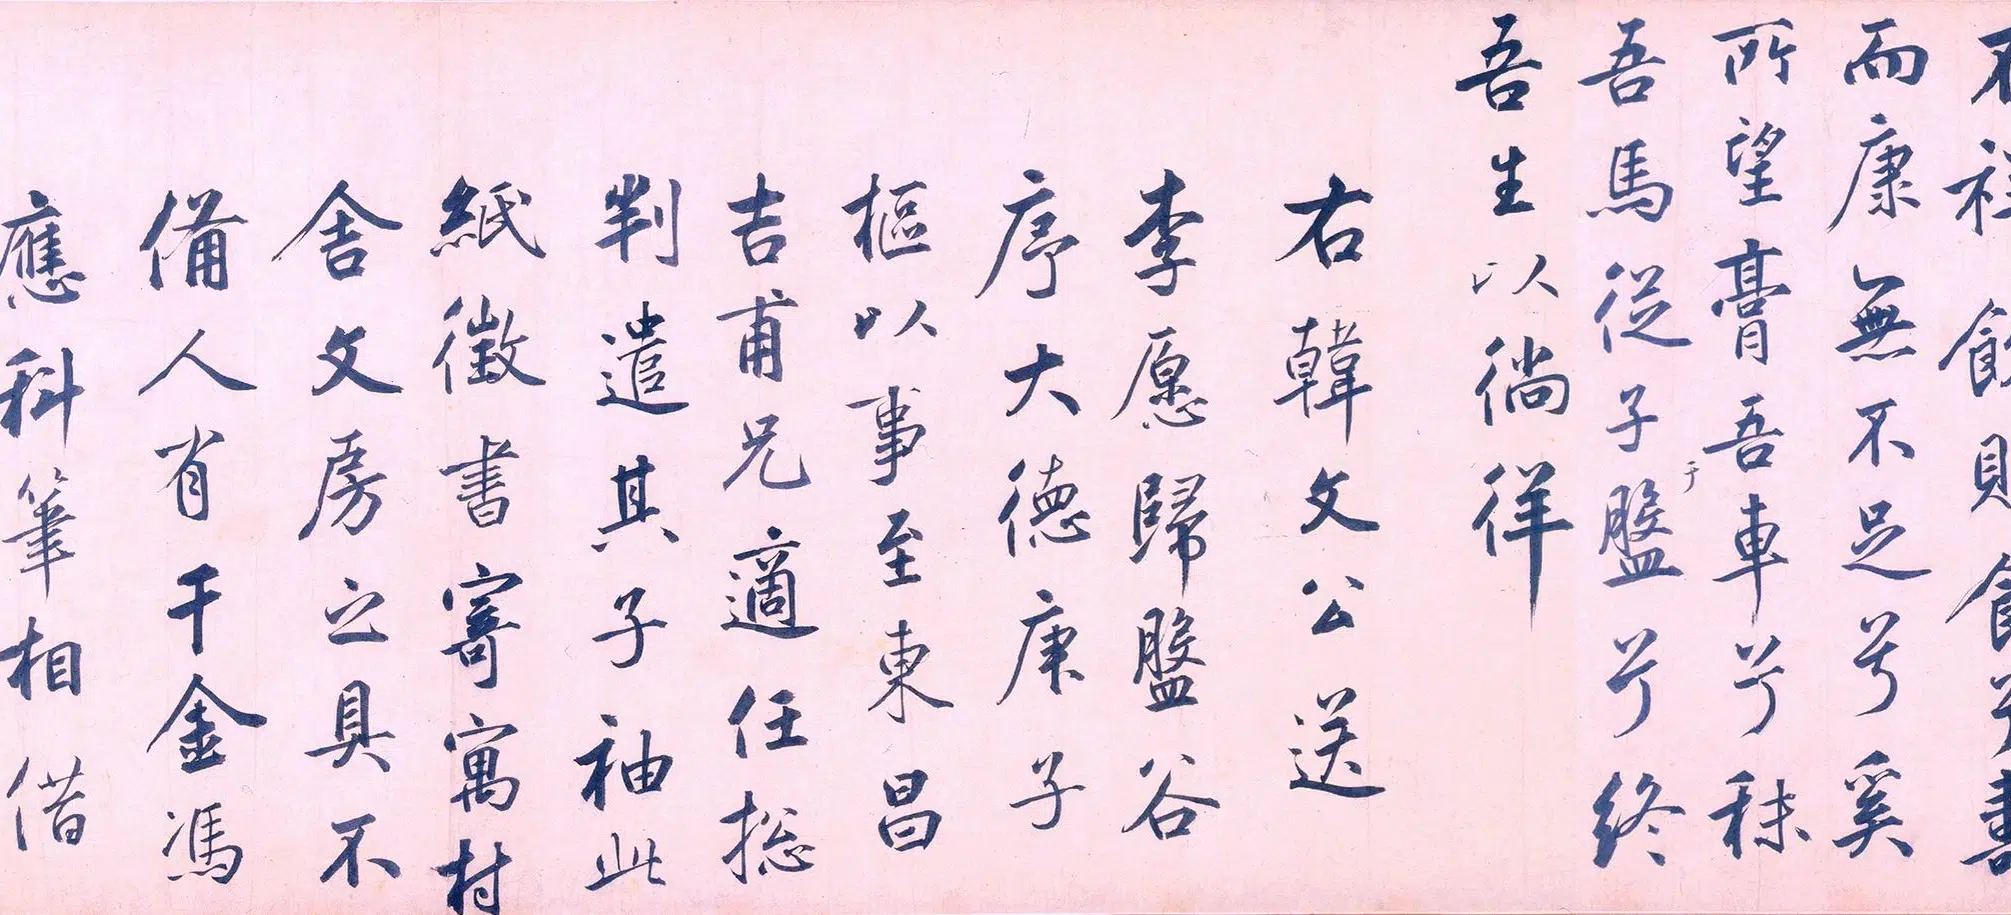 不祥飲且食兮壽
而康無不足兮奚
所望膏吾車兮秣
吾馬從子盤兮終
于
吾生以徜徉
右韓文公送
李愿歸盤谷
序大德庚子
樞以事至東昌
吉甫兄適任總
判遣其子袖此
紙徵書寄寓村
舍文房之具不
備人有千金馮
應科筆相借